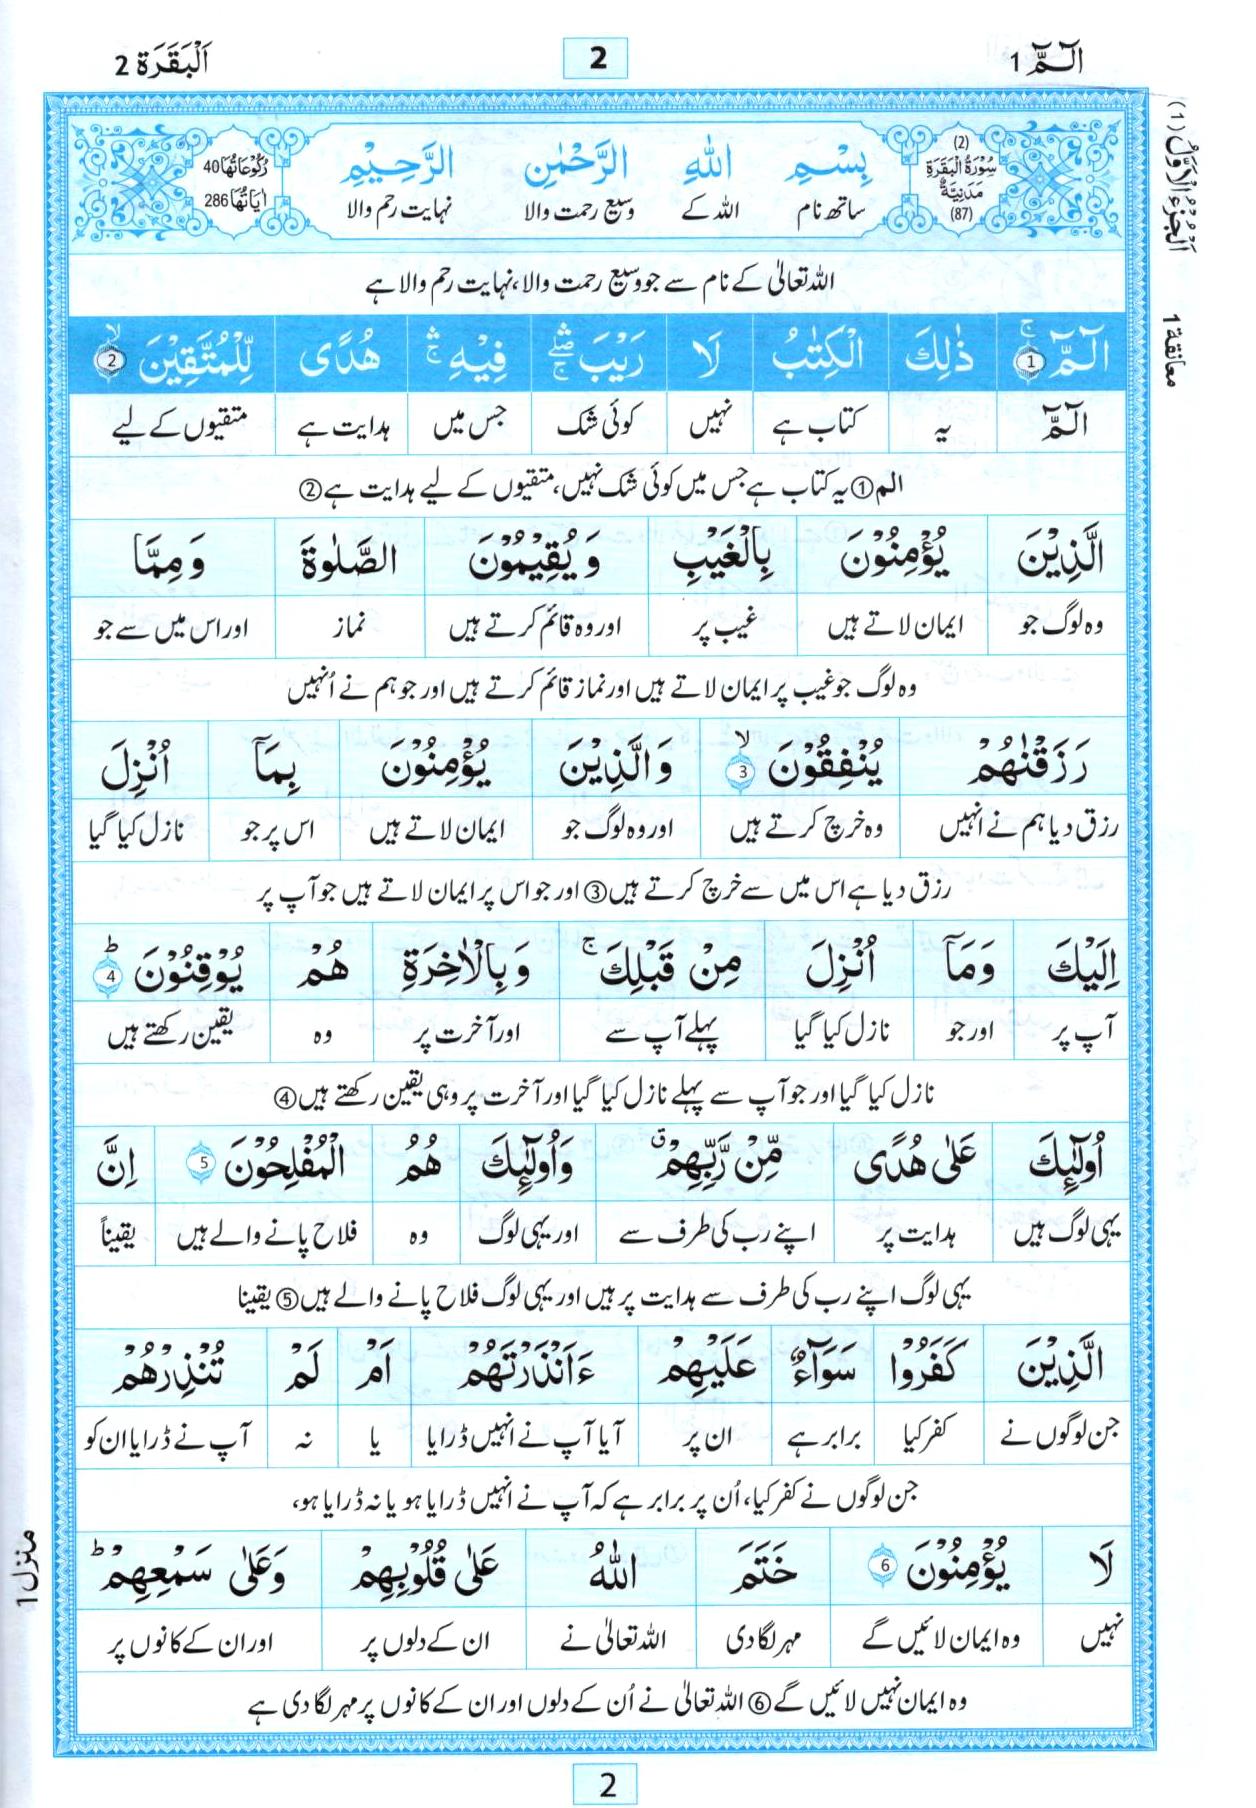 الٓمّٓ 1
2
اَلْبَقَرَة 2
اَلْجُزْءُ الْاَوَّلُ (1)
معانقة 1
(2)
سُوْرَةُ الْبَقَرَةِ
مَدَنِيَّةٌ
(87)
بِسْمِ اللّٰهِ الرَّحْمٰنِ الرَّحِيْمِ
ساتھ نام اللہ کے وسیع رحمت والا نہایت رحم والا
رُكُوْعَاتُهَا 40
اٰيَاتُهَا 286
اللہ تعالیٰ کے نام سے جو وسیع رحمت والا، نہایت رحم والا ہے
الٓمّٓ ۚ 1 ذٰلِكَ الْكِتٰبُ لَا رَيْبَ ۛۖۚ فِيْهِ ۛۚ هُدًى لِّلْمُتَّقِيْنَ ۙ 2
الٓمّٓ یہ کتاب ہے نہیں کوئی شک جس میں ہدایت ہے متقیوں کے لیے
الم ① یہ کتاب ہے جس میں کوئی شک نہیں، متقیوں کے لیے ہدایت ہے ②
الَّذِيْنَ يُؤْمِنُوْنَ بِالْغَيْبِ وَيُقِيْمُوْنَ الصَّلٰوةَ وَمِمَّا
وہ لوگ جو ایمان لاتے ہیں غیب پر اور وہ قائم کرتے ہیں نماز اور اس میں سے جو
وہ لوگ جو غیب پر ایمان لاتے ہیں اور نماز قائم کرتے ہیں اور جو ہم نے اُنہیں
رَزَقْنٰهُمْ يُنْفِقُوْنَ ۙ 3 وَالَّذِيْنَ يُؤْمِنُوْنَ بِمَآ اُنْزِلَ
رزق دیا ہم نے انہیں وہ خرچ کرتے ہیں اور وہ لوگ جو ایمان لاتے ہیں اس پر جو نازل کیا گیا
رزق دیا ہے اس میں سے خرچ کرتے ہیں ③ اور جو اس پر ایمان لاتے ہیں جو آپ پر
اِلَيْكَ وَمَآ اُنْزِلَ مِنْ قَبْلِكَ ۚ وَبِالْاٰخِرَةِ هُمْ يُوْقِنُوْنَ ؕ 4
آپ پر اور جو نازل کیا گیا پہلے آپ سے اور آخرت پر وہ یقین رکھتے ہیں
نازل کیا گیا اور جو آپ سے پہلے نازل کیا گیا اور آخرت پر وہی یقین رکھتے ہیں ④
اُولٰٓئِكَ عَلٰى هُدًى مِّنْ رَّبِّهِمْ ۗ وَاُولٰٓئِكَ هُمُ الْمُفْلِحُوْنَ 5 اِنَّ
یہی لوگ ہیں ہدایت پر اپنے رب کی طرف سے اور یہی لوگ وہ فلاح پانے والے ہیں یقیناً
یہی لوگ اپنے رب کی طرف سے ہدایت پر ہیں اور یہی لوگ فلاح پانے والے ہیں ⑤ یقینا
الَّذِيْنَ كَفَرُوْا سَوَآءٌ عَلَيْهِمْ ءَاَنْذَرْتَهُمْ اَمْ لَمْ تُنْذِرْهُمْ
جن لوگوں نے کفر کیا برابر ہے ان پر آیا آپ نے انہیں ڈرایا یا نہ آپ نے ڈرایا ان کو
جن لوگوں نے کفر کیا، اُن پر برابر ہے کہ آپ نے انہیں ڈرایا ہو یا نہ ڈرایا ہو،
لَا يُؤْمِنُوْنَ 6 خَتَمَ اللّٰهُ عَلٰى قُلُوْبِهِمْ وَعَلٰى سَمْعِهِمْ ؕ
نہیں وہ ایمان لائیں گے مہر لگا دی اللہ تعالیٰ نے ان کے دلوں پر اور ان کے کانوں پر
وہ ایمان نہیں لائیں گے ⑥ اللہ تعالیٰ نے اُن کے دلوں اور ان کے کانوں پر مہر لگا دی ہے
منزل 1
2